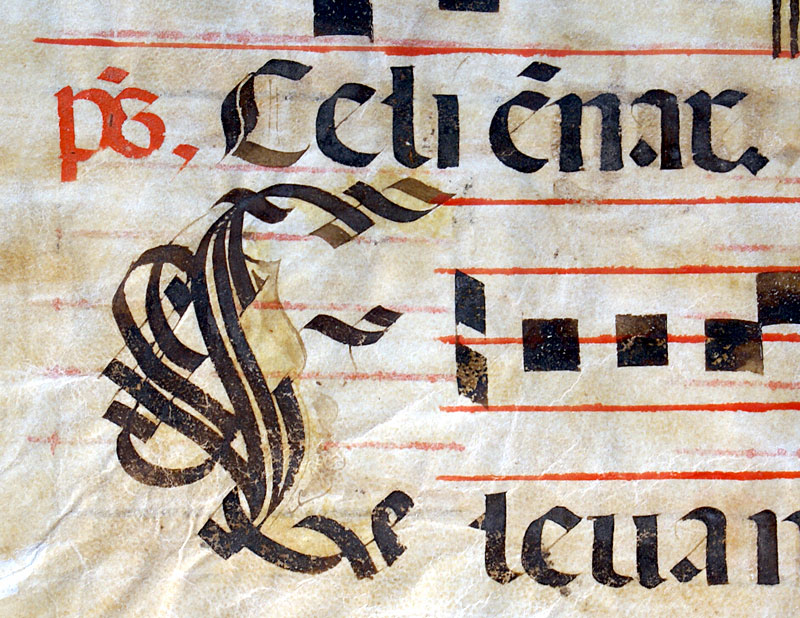 p̄s, Celi ēnar.
Eleuan